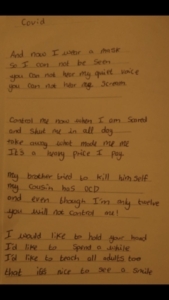 Covid
And now I wear a mask
So I can not be seen
you can not hear my quiet voice
you can not hear me scream
Control me now when I am scared
and shut me in all day
take away what made me me
It's a heavy price I pay
my brother tried to kill himself
my cousin has OCD
and even though I'm only twelve
you will not control me!
I would like to hold your hand
I'd like to spend a while
I'd like to teach all adults too
that its nice to see a smile